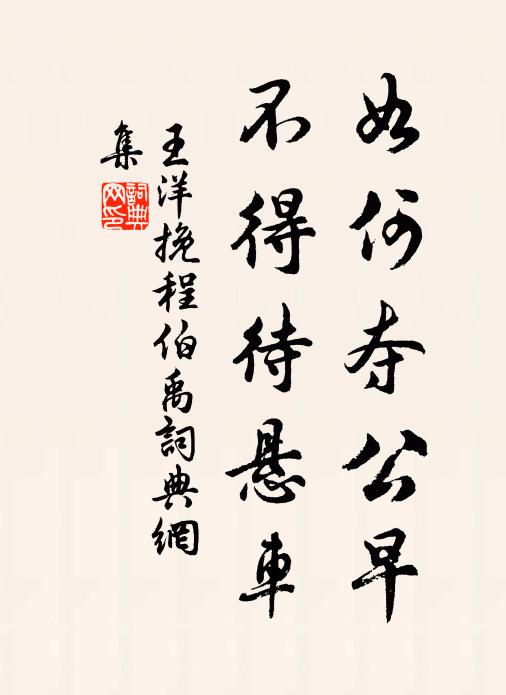 如何夺公早
不得待悬車
王洋挽程伯禹詞典網
集
詞典
网印